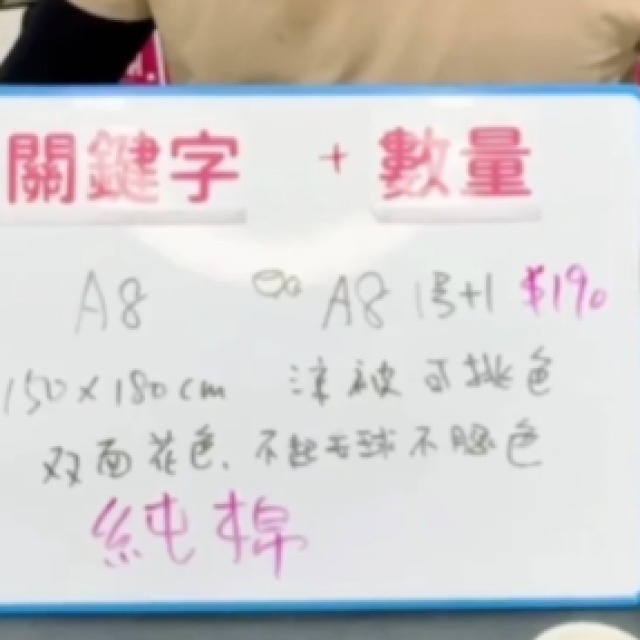 關鍵字 + 數量
A8 A8 1号+1 $190
150x180cm 涼被 可挑色
双面花色、不起毛球不腿色
純棉